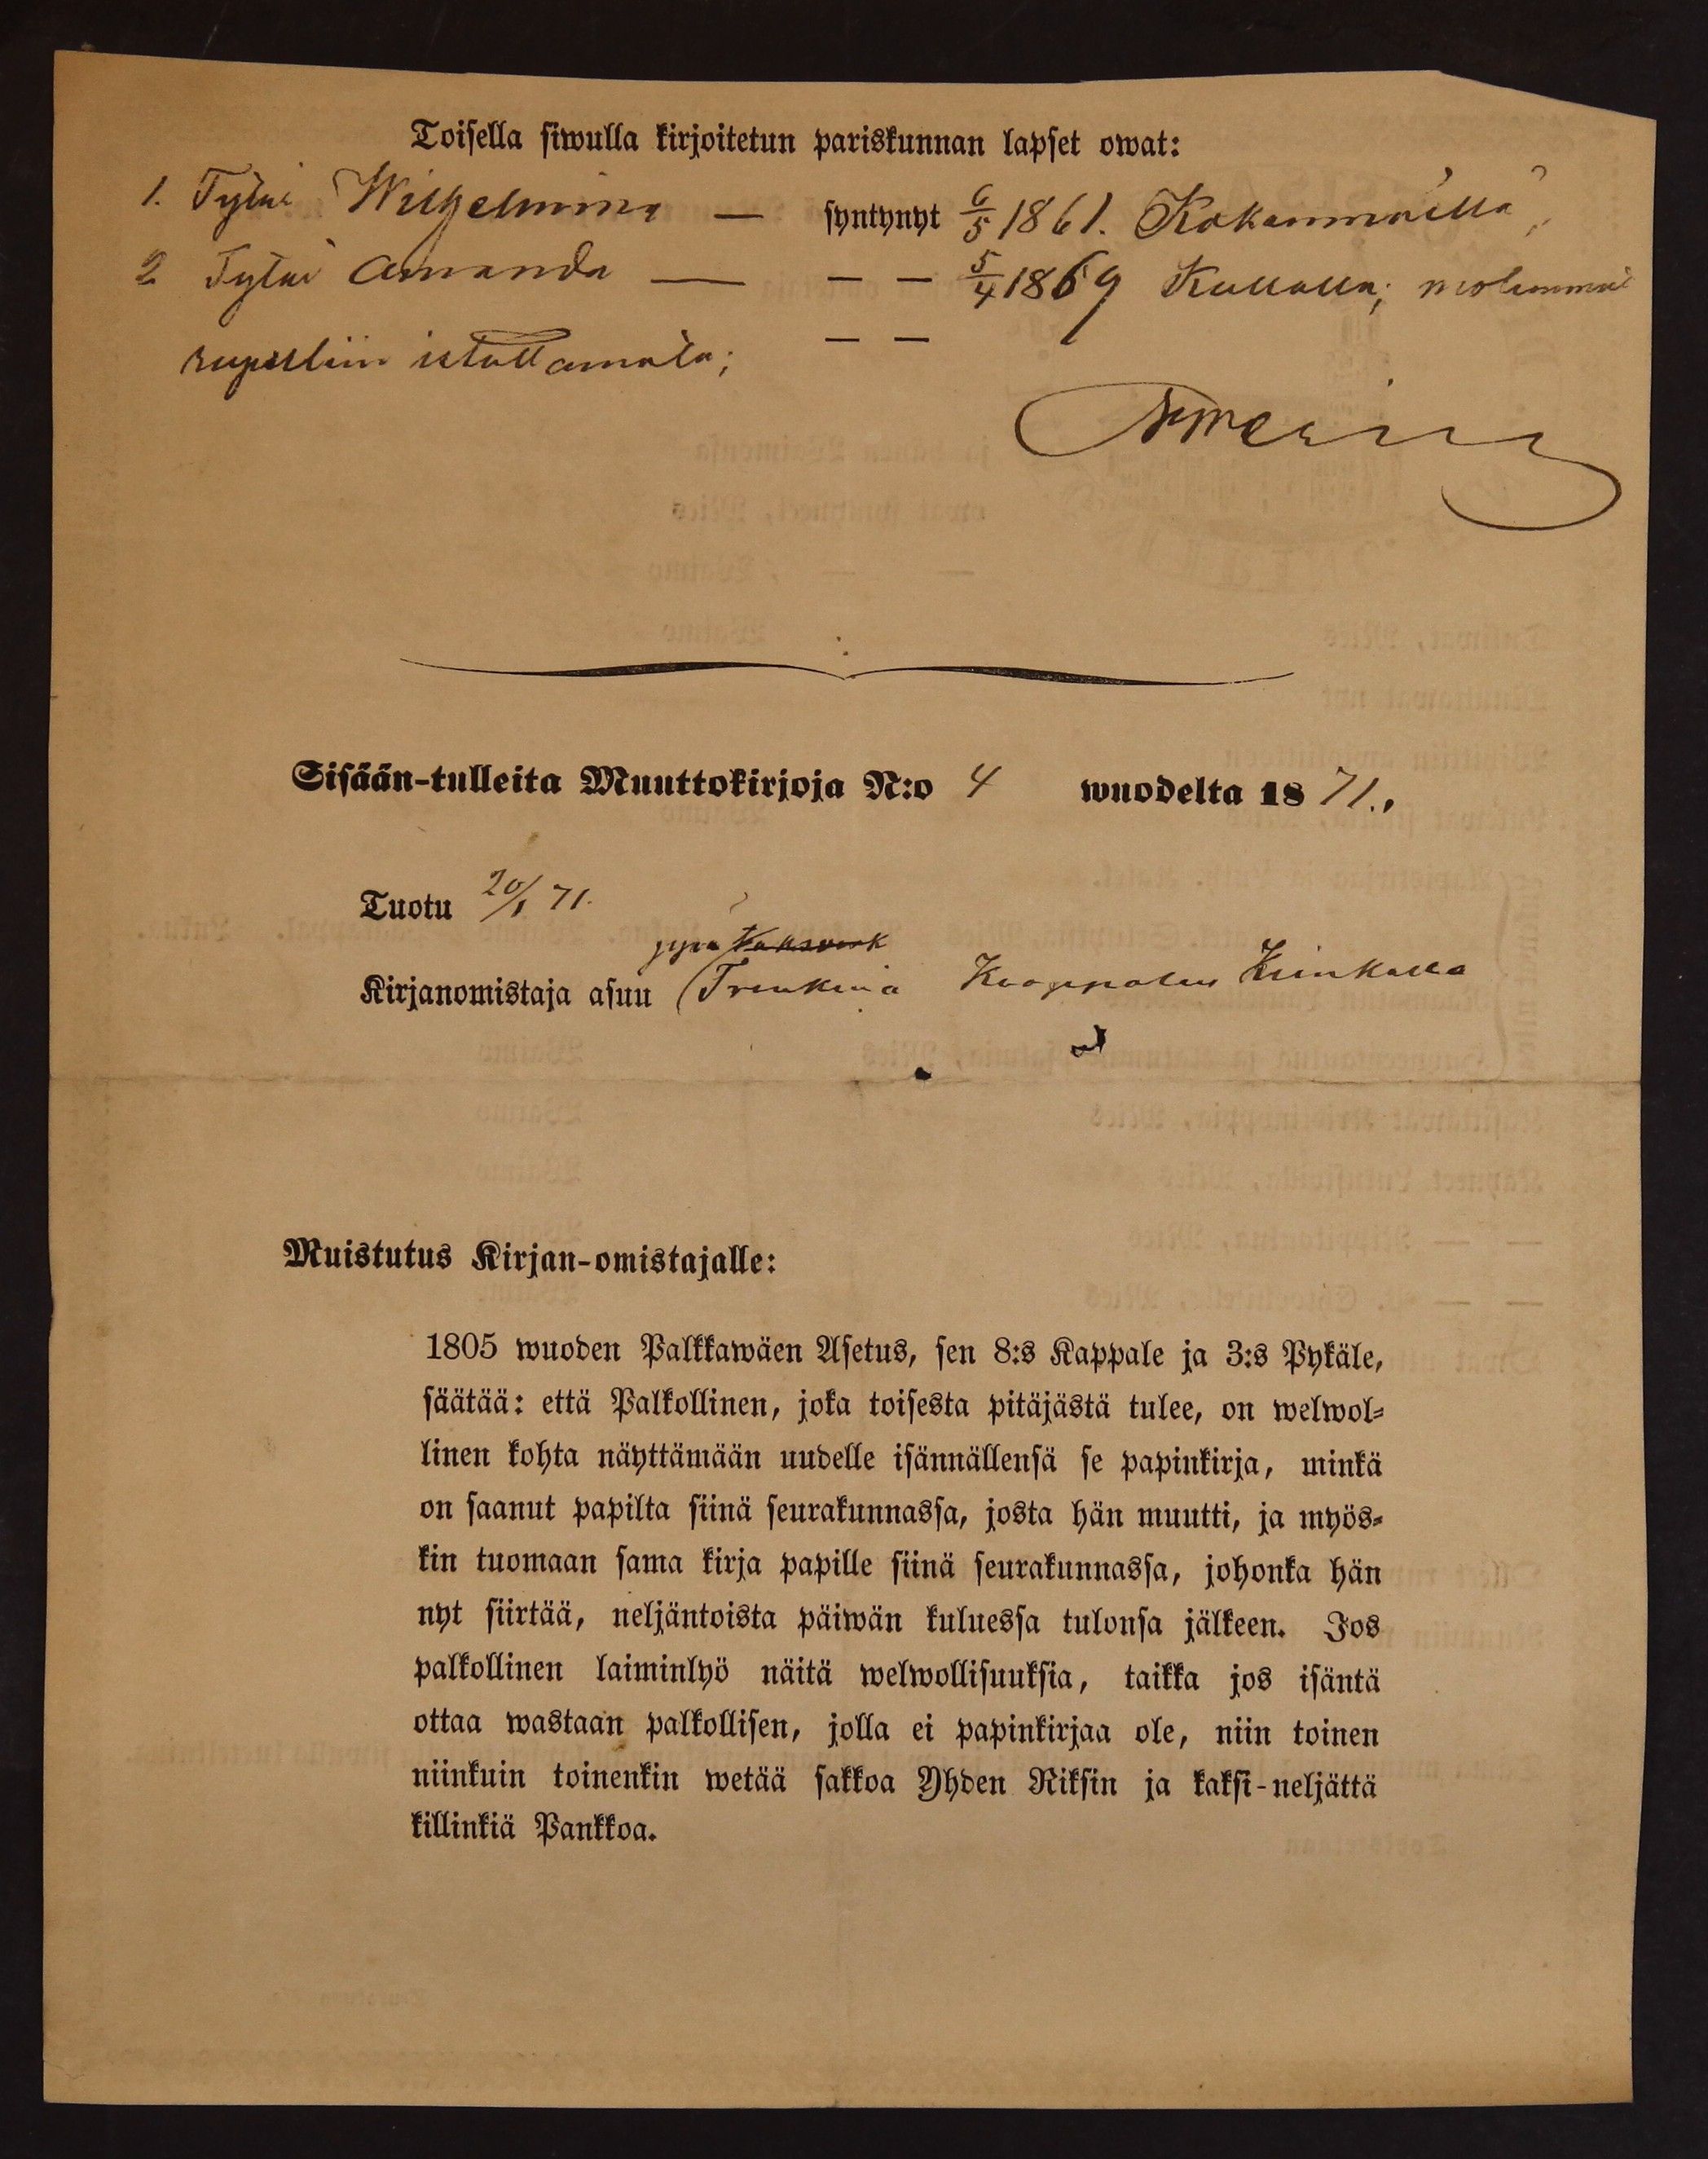 Toisella siwulla kirjoitetun pariskunnan lapset owat:
1. Tytär Wilhelmina — syntynyt 6/5 1861. Kokemäellä,
2 Tytär Amanda — — — 5/4 1869 Kullalla; molemmat
— —
rupuliin istuttamata;
Sisään-tulleita Muuttokirjoja N:o 4 wuodelta 1871.,
Tuotu 20/1 71.
Kirjanomistaja asuu
Muistutus Kirjan-omistajalle:
1805 wuoden Palkkawäen Asetus, sen 8:s Kappale ja 3:s Pykäle,
säätää: että Palkollinen, joka toisesta pitäjästä tulee, on welwol=
linen kohta näyttämään uudelle isännällensä se papinkirja, minkä
on saanut papilta siinä seurakunnassa, josta hän muutti, ja myös=
kin tuomaan sama kirja papille siinä seurakunnassa, johonka hän
nyt siirtää, neljäntoista päiwän kuluessa tulonsa jälkeen. Jos
palkollinen laiminlyö näitä welwollisuuksia, taikka jos isäntä
ottaa wastaan palkollisen, jolla ei papinkirjaa ole, niin toinen
niinkuin toinenkin wetää sakkoa Yhden Riksin ja kaksi-neljättä
killinkiä Pankkoa.